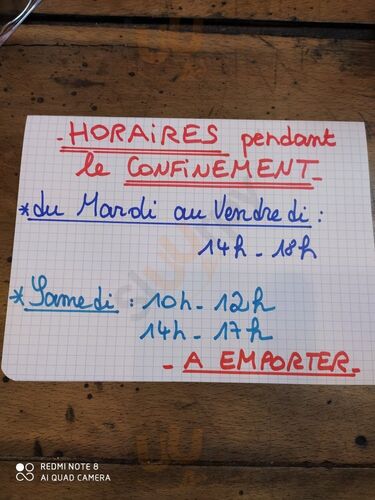 - HORAIRES pendant
le CONFINEMENT -
* du Mardi au Vendredi :
14h - 18h
* Samedi : 10h - 12h
14h - 17h
- A EMPORTER -
REDMI NOTE 8
AI QUAD CAMERA